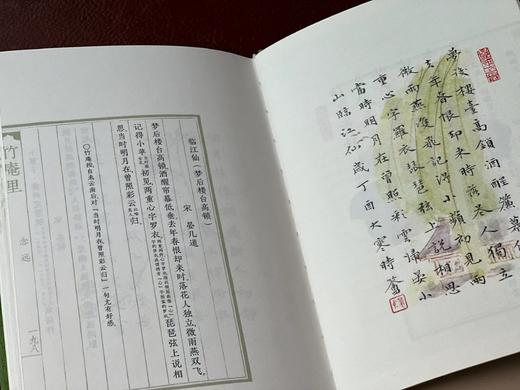 夢後樓臺高鎖酒醒簾幕低
去年春恨却来時落花人獨立
微雨燕雙飛記得小蘋初見兩
重心字羅衣琵琶絃上說相思
當時明月在曾照彩雲歸吴小
山臨江仙歲丁酉大寒時
临江仙（梦后楼台高锁）
宋 晏几道
梦后楼台高锁酒醒帘幕低垂去年春恨却来时落花人独立微雨燕双飞
记得小苹初见两重心字罗衣琵琶弦上说相
思当时明月在曾照彩云归
◎竹庵按自来云南后对「当时明月在曾照彩云归」一句尤有好感。
竹庵里
念远
一九八